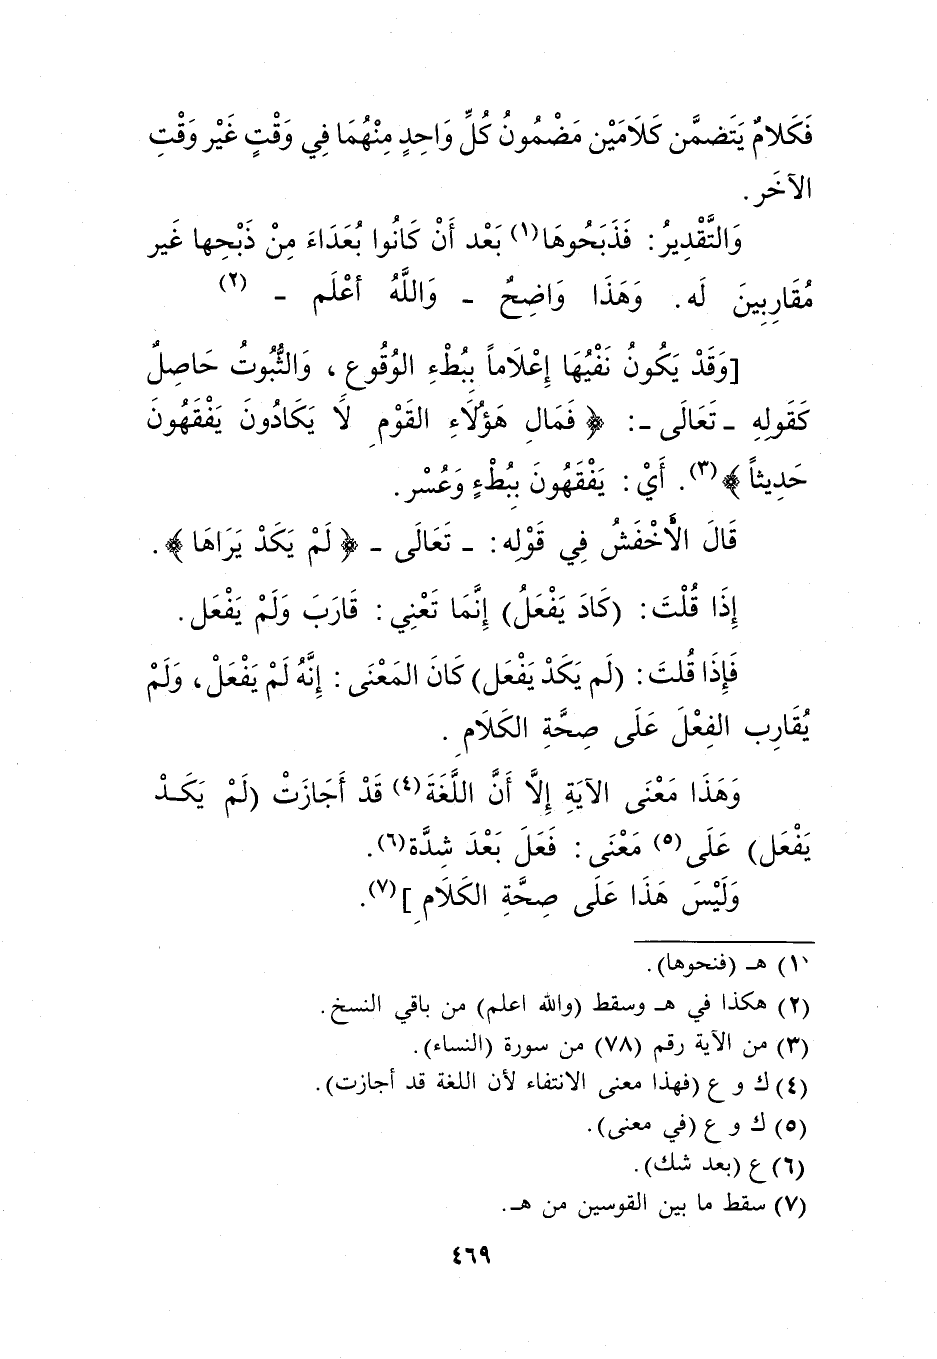 فَكَلامٌ يَتَضمَّن كَلَامَيْن مَضْمُونُ كُلِّ وَاحِدٍ مِنْهُمَا فِي وَقْتٍ غَيْر وَقْتِ
الآخَر.
وَالتَّقْدِيرُ: فَذَبَحُوهَا(١) بَعْد أَنْ كَانُوا بُعَدَاءَ مِنْ ذَبْحِها غَير
مُقَارِبِينَ لَه. وَهَذَا وَاضِحٌ - وَاللَّهُ أعْلَم - (٢)
[وَقَدْ يَكُونُ نَفْيُهَا إِعْلَاماً بِبُطْءِ الوُقُوع، وَالثُّبُوتُ حَاصِلٌ
كَقَولِهِ - تَعَالَى -: ﴿فَمَالِ هَؤُلَاءِ القَوْمِ لَا يَكَادُونَ يَفْقَهُونَ
حَدِيثاً﴾(٣). أَيْ: يَفْقَهُونَ بِبُطْءٍ وَعُسْر.
قَالَ الأَخْفَشُ فِي قَوْلِه: - تَعَالَى - ﴿لَمْ يَكَدْ يَرَاهَا﴾.
إِذَا قُلْتَ: (كَادَ يَفْعَلُ) إِنَّمَا تَعْنِي: قَارَبَ وَلَمْ يَفْعَل.
فَإِذَا قُلتَ: (لَم يَكَدْ يَفْعَل) كَانَ المَعْنَى: إِنَّهُ لَمْ يَفْعَلْ، وَلَمْ
يُقَارِب الفِعْلَ عَلَى صِحَّةِ الكَلَامِ.
وَهَذَا مَعْنَى الآيَةِ إِلَّا أَنَّ اللَّغَةَ(٤) قَدْ أَجَازَتْ (لَمْ يَكَـدْ
يَفْعَل) عَلَى(٥) مَعْنَى: فَعَلَ بَعْدَ شِدَّة(٦).
وَلَيْسَ هَذَا عَلَى صِحَّةِ الكَلَامِ](٧).
(١) هـ (فنحوها).
(٢) هكذا في هـ وسقط (والله اعلم) من باقي النسخ.
(٣) من الآية رقم (٧٨) من سورة (النساء).
(٤) ك و ع (فهذا معنى الانتفاء لأن اللغة قد أجازت).
(٥) ك و ع (في معنى).
(٦) ع (بعد شك).
(٧) سقط ما بين القوسين من هـ.
٤٦٩